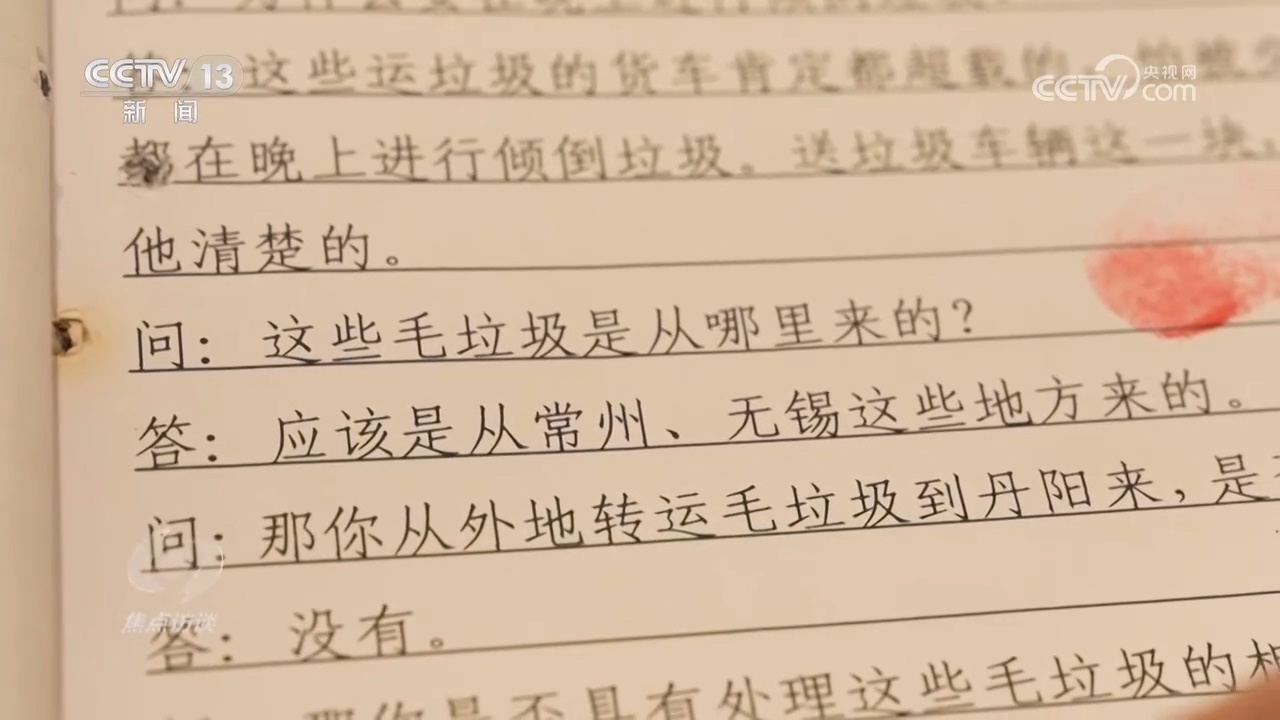 CCTV 13
新闻
央视网
CCTV.com
答：这些运垃圾的货车肯定都超载的，怕被
都在晚上进行倾倒垃圾。送垃圾车辆这一块，
他清楚的。
问：这些毛垃圾是从哪里来的？
答：应该是从常州、无锡这些地方来的。
问：那你从外地转运毛垃圾到丹阳来，是
焦点访谈
答：没有。
那你是否具有处理这些毛垃圾的相